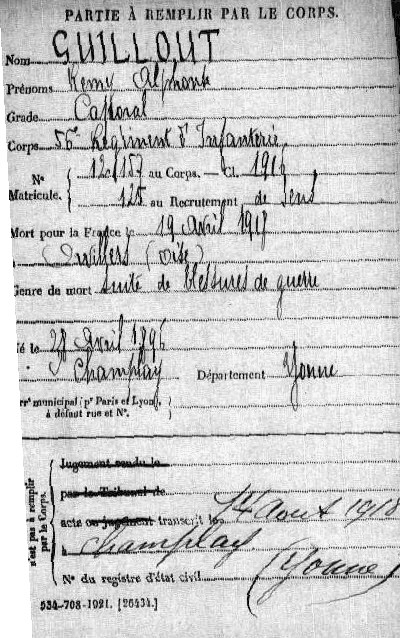 PARTIE À REMPLIR PAR LE CORPS.
Nom GUILLOUT
Prénoms Remy Alphonse
Grade Caporal
Corps 56e Régiment d'Infanterie
N° 12157 au Corps. Cl. 1916
Matricule. 125 au Recrutement de Sens
Mort pour la France le 19 Avril 1918
(Oise)
Genre de mort suite de blessures de guerre
Né le 28 Avril 1896
à Champlay Département Yonne
Arrt municipal (pr Paris et Lyon), à défaut rue et N°.
n'est pas à remplir par le Corps.
Jugement rendu le
par le Tribunal de
acte ou jugement transcrit le 14 Aout 1918
à Champlay (Yonne)
N° du registre d'état civil
534-708-1921. [26434.]